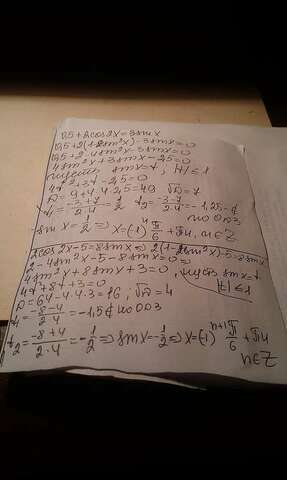 0,5+2cos2x=3sinx
0,5+2(1-2sin²x)-3sinx=0
0,5+2-4sin²x-3sinx=0
4sin²x+3sinx-2,5=0
пусть sinx=t, |t|≤1
4t²+3t-2,5=0
D=9+4·4·2,5=49 √D=7
t₁=(-3+7)/(2·4)=1/2 t₂=(-3-7)/(2·4)=-1,25-∉
по ОДЗ
sinx=1/2 x=(-1)ⁿ π/6+πn, n∈Z
2cos2x-5=8sinx=>2(1-2sin²x)-5=8sinx
2-4sin²x-5-8sinx=0
4sin²x+8sinx+3=0, пусть sinx=t
4t²+8t+3=0 |t|≤1
D=64-4·4·3=16, √D=4
t₁=(-8-4)/(2·4)=-1,5∉ по ОДЗ
t₂=(-8+4)/(2·4)=-1/2=>sinx=-1/2=>x=(-1)ⁿ⁺¹ π/6+πn
n∈Z